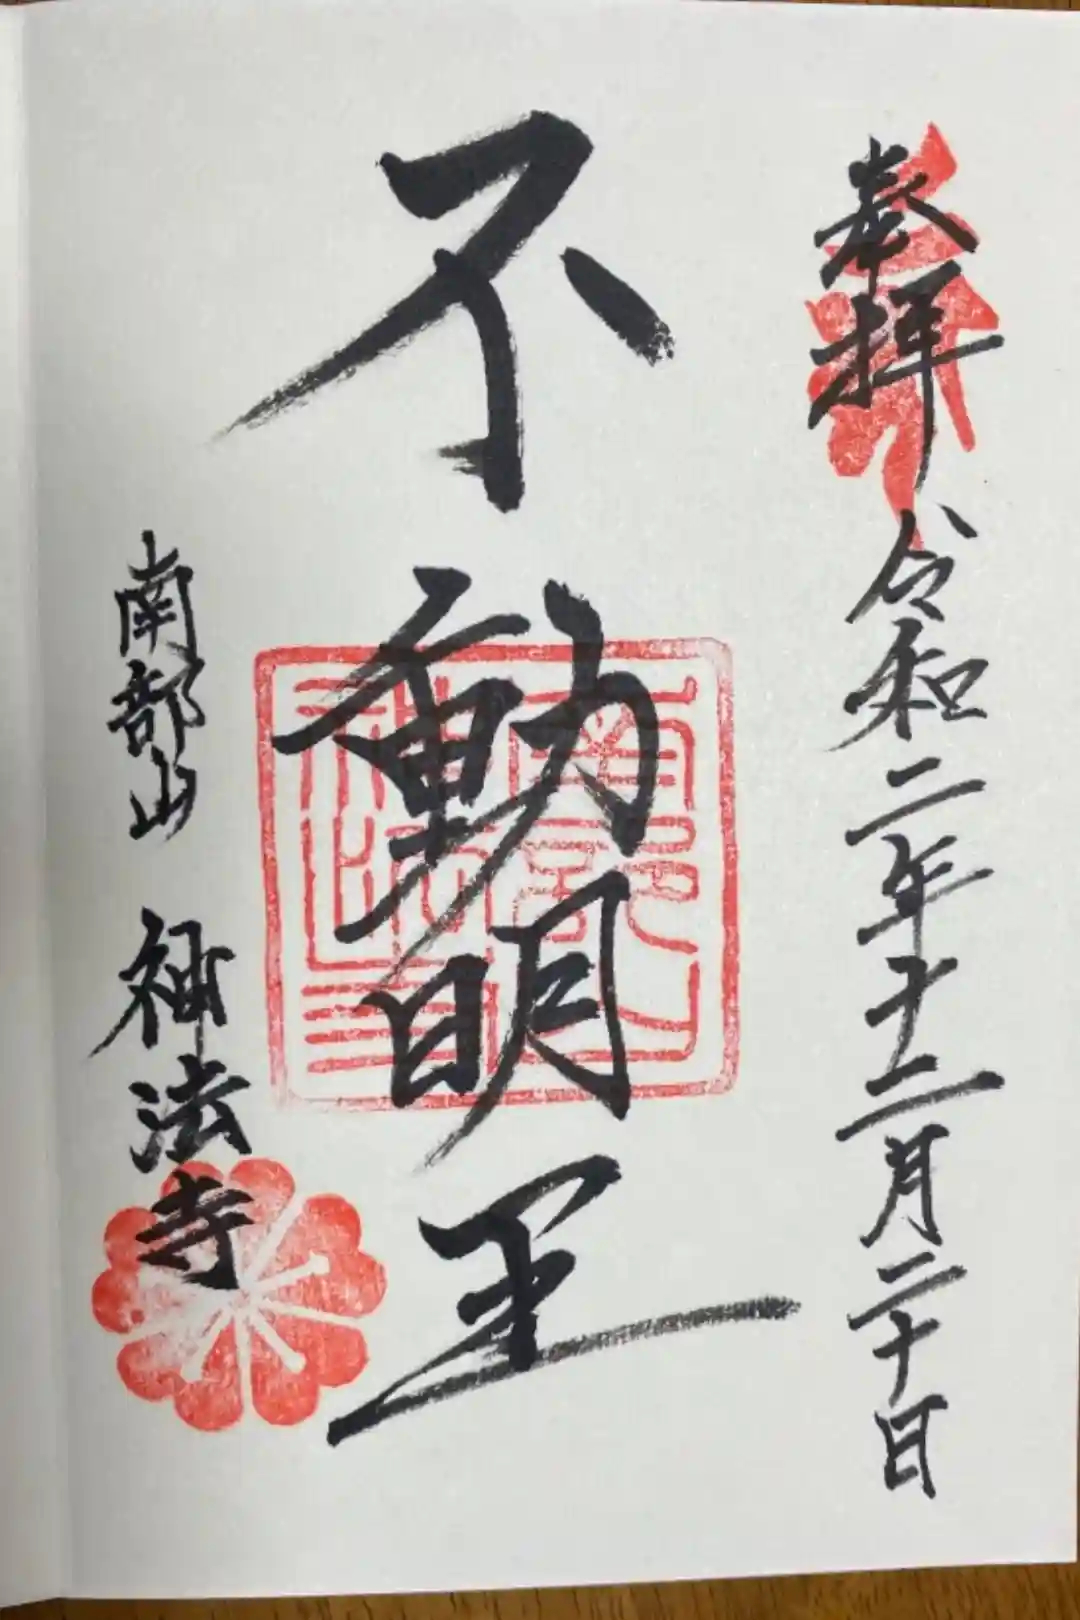 奉拝
令和二年十二月二十日
不動明王
南部山 神法寺